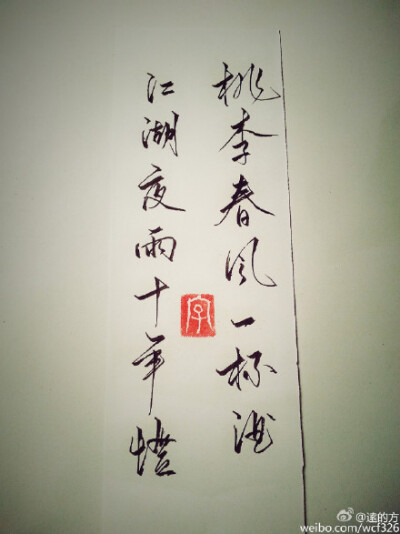 桃李春风一杯酒
江湖夜雨十年燈
字
@遠的方
weibo.com/wcf326